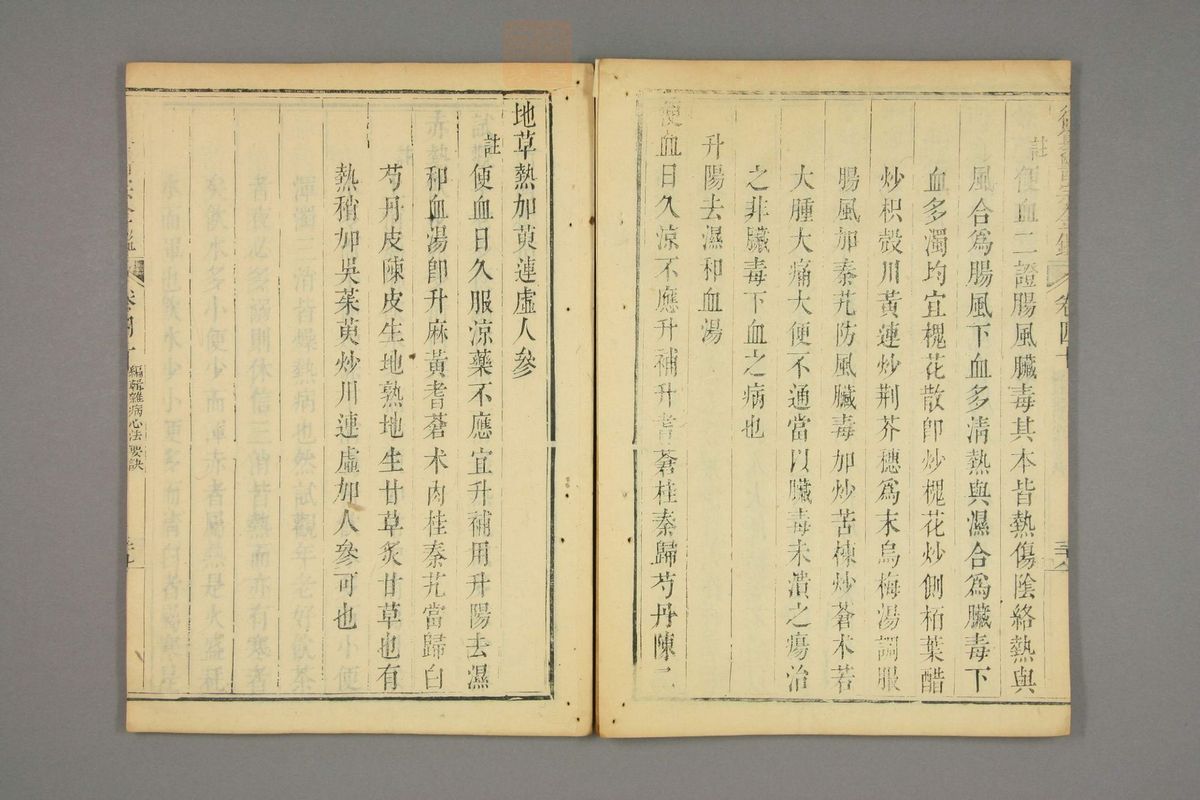 卷四十
註便血二證腸風臟毒其本皆熱傷陰絡熱與
風合爲腸風下血多淸熱與濕合爲臟毒下
血多濁均宜槐花散卽炒槐花炒側栢葉醋
炒枳殼川黃連炒荆芥穗爲末烏梅湯調服
腸風加秦艽防風臟毒加炒苦楝炒蒼朮若
大腫大痛大便不通當以臟毒未潰之瘍治
之非臟毒下血之病也
升陽去濕和血湯
便血日久涼不應升補升耆蒼桂秦歸芍丹陳二
地草熱加萸連虛人參
註便血日久服涼藥不應宜升補用升陽去濕
和血湯卽升麻黃耆蒼朮肉桂秦艽當歸白
芍丹皮陳皮生地熟地生甘草炙甘草也有
熱稍加吳茱萸炒川連虛加人參可也
編輯雜病心法要訣